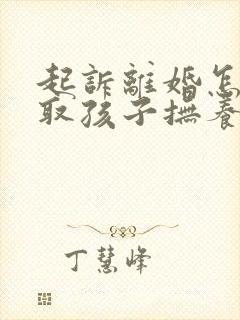 起訴離婚怎
取孩子撫養
丁慧峰